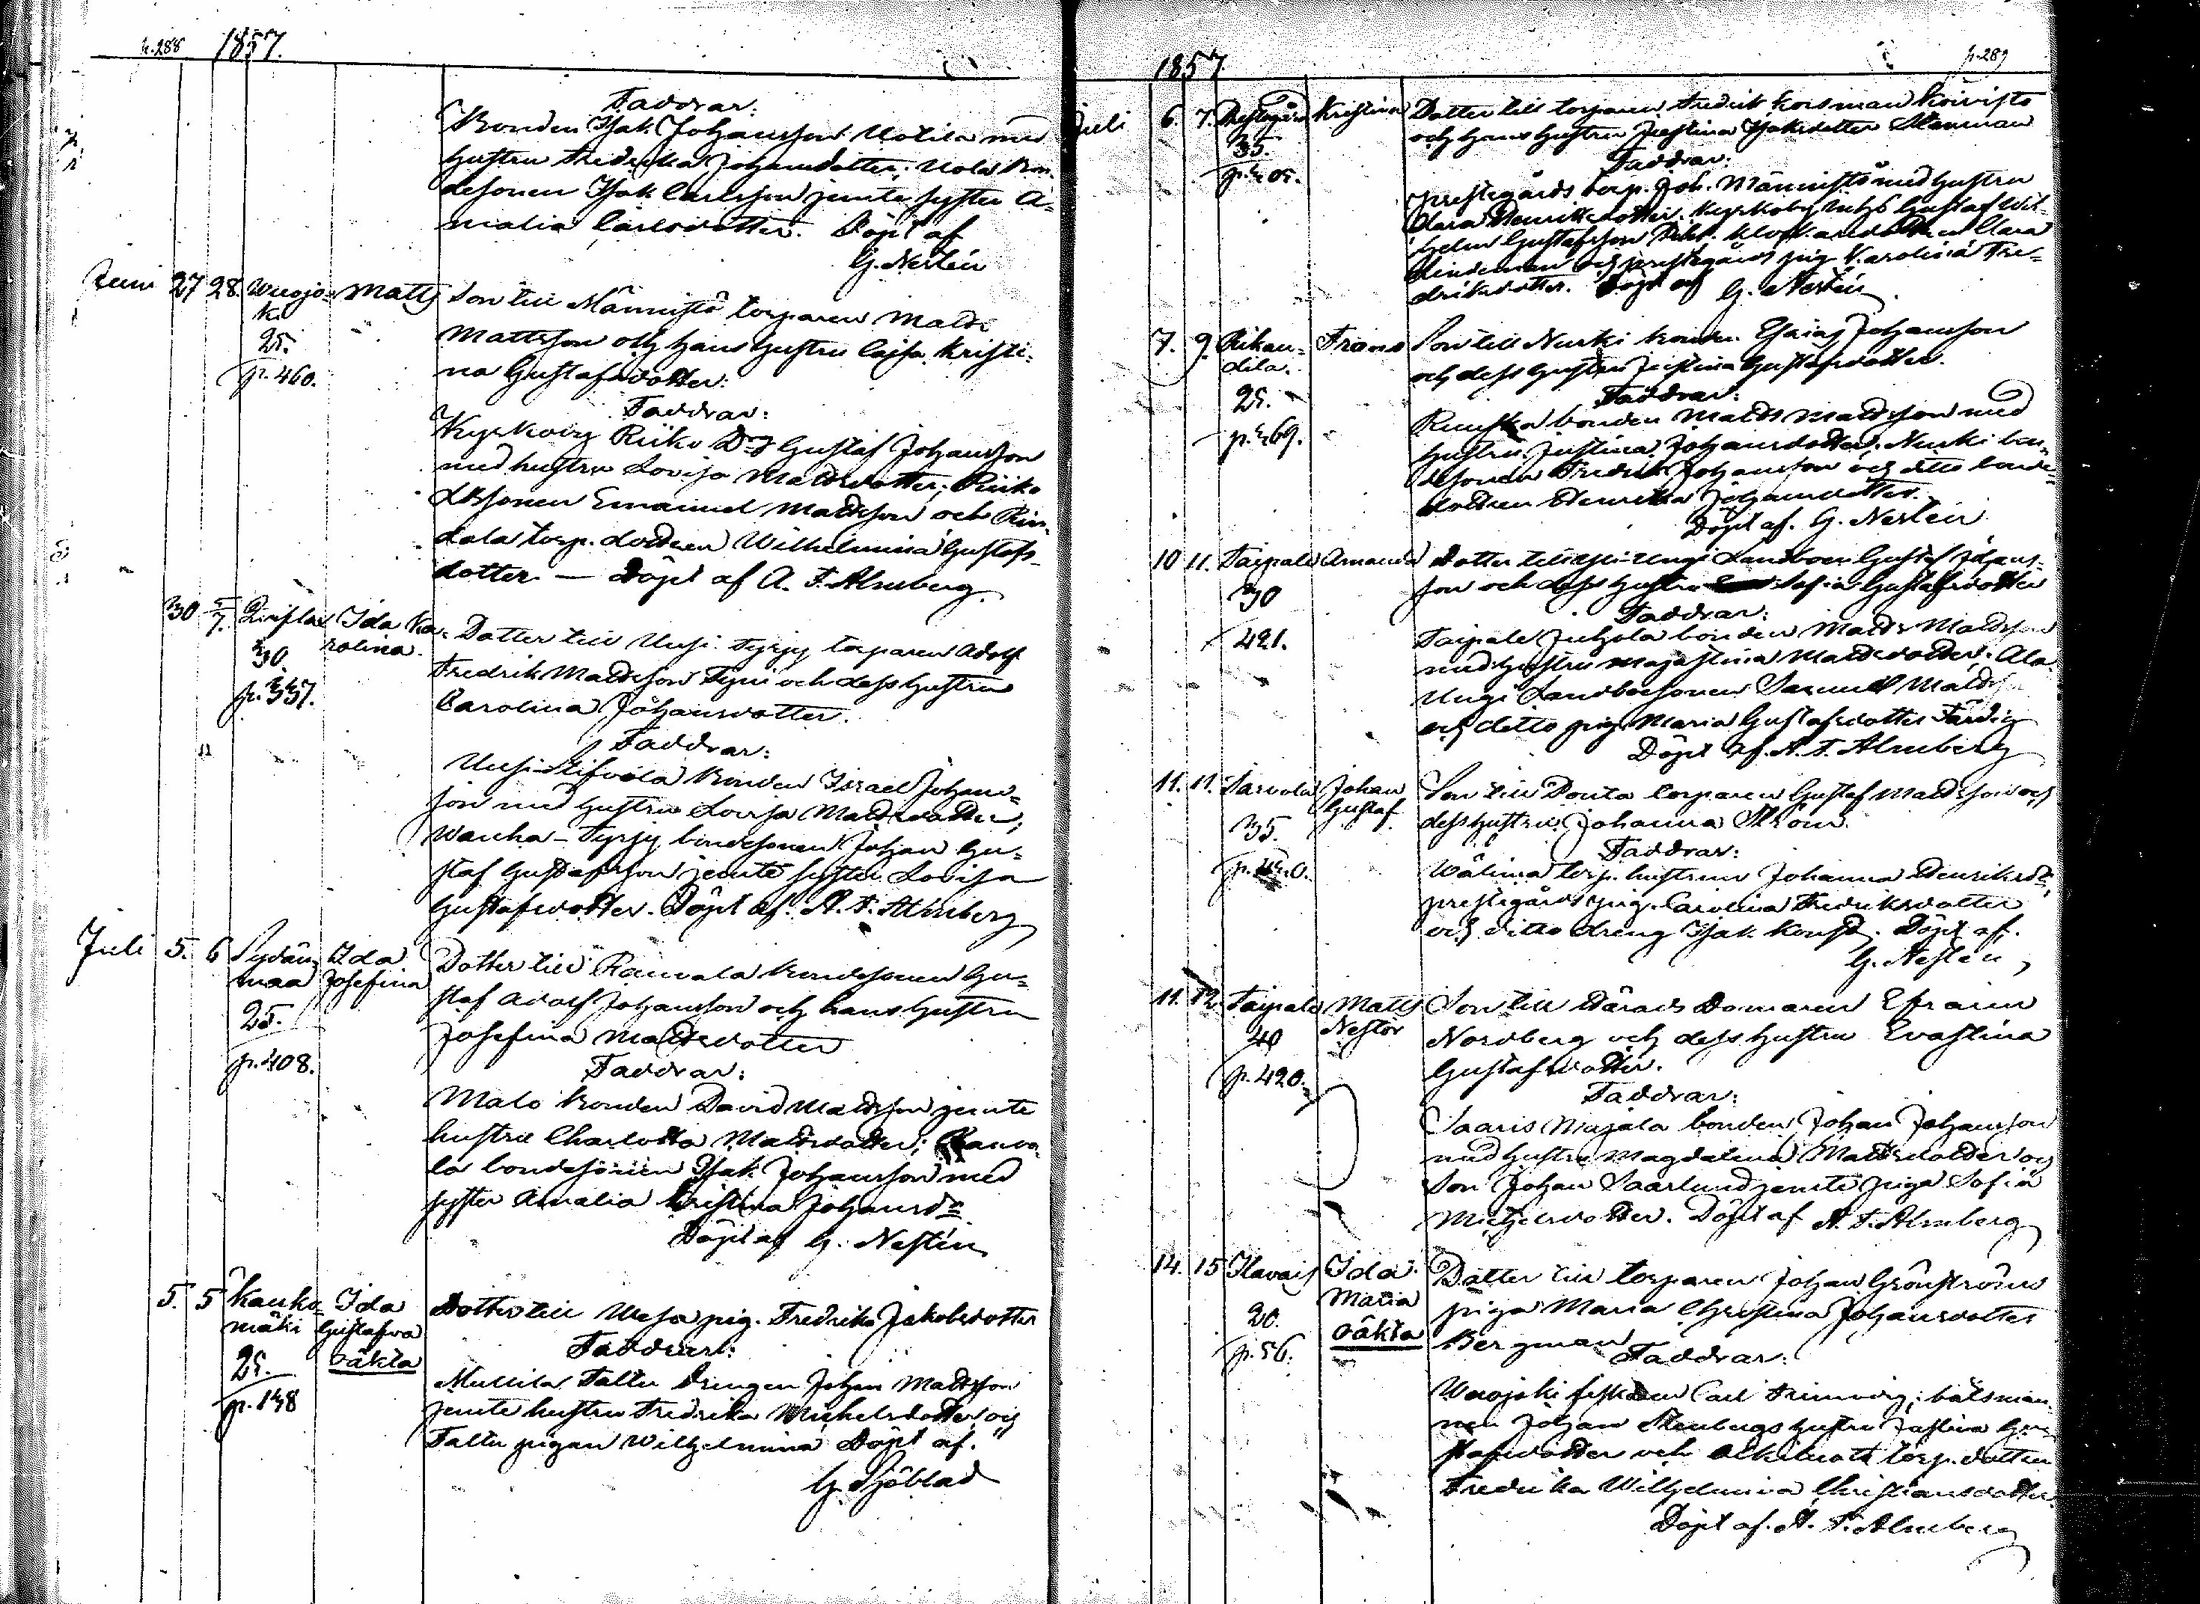 p. 288 1857.
Faddrar:
Bonden Isak Johansson Uotila med
hustru Fredrika Johansdotter; Uola bon-
desonen Isak Carlsson jemte syster A-
malia Carlsdotter. Döpt af
G. Nestén
Juni 27 28. Wuojo- Matts Son till Männistö torparen Matts
ki
25. Mattsson och hans hustru Cajsa Kristi-
p. 460. na Gustafsdotter.
Faddrar:
Kyrkoby Riiko Gustaf Johansson
med hustru Lovisa Mattsdotter; Riiko
sonen Emanuel Mattsson och
torp. dottren Wilhelmina Gustafs-
dotter. — Döpt af A. F. Almberg.
30 5/7. Ida Ka- Dotter till Uusi-Tyrjy torparen Adolf
30. rolina.
p. 337. Fredrik Mattsson och dess hustru
Carolina Johansdotter.
Faddrar:
Uusi bonden Israel Johans-
son med hustru Lovisa Mattsdotter;
Wanha-Tyrjy bondesonen Johan Gu-
staf Gustafsson jemte syster Lovisa
Gustafsdotter. Döpt af. A. F. Almberg
Juli 5. 6 Sydän- Ida Dotter till Rauvala bondesonen Gu-
maa Josefina
25. staf Adolf Johansson och hans hustru
p. 408. Josefina Mattsdotter
Faddrar:
Malo bonden David Mattsson jemte
hustru Charlotta Mattsdotter; Rauva-
la bondesonen Isak Johansson med
syster Amalia Kristina Johansdr.
Döpt af G. Nestén
5. 5 Kauko- Ida Dotter till Wesa pig. Fredrika Jakobsdotter
mäki Gustafva
25. oäkta Faddrar:
p. 148 Mullila Taltu drengen Johan Mattsson
jemte hustru Fredrika Michelsdotter och
Taltu pigan Wilhelmina Döpt af.
G. Sjöblad
1857 p. 289
Juli 6. 7. Prestegård Kristina Dotter till torparen Fredrik Korsman Koivisto
35. och hans hustru Justina Isaksdotter Stenman
p. 405. Faddrar:
Prestegårds torp. Joh. Männistö med hustru
Clara Henriksdotter; Kyrkoby Gustaf Wil-
helm Gustafsson klockaredottren Clara
Lindeman och prestegårds pig. Karolina Fre-
driksdotter. Döpt af G. Nestén.
7. 9. Rikan- Frans Son till Nurki bonden Esaias Johansson
dila. och dess hustru Justina Gustafsdotter.
25. Faddrar:
p. 269. bonden Matts Mattsson med
hustru Justina Johansdotter; Nurki bon-
desonen Fredrik Johansson och ditto bonde-
dottren Henrika Johansdotter.
Döpt af. G. Nestén
10 11. Taipale Amanda Dotter till Yli-Ungi Landboen Gustaf Johans-
30 son och dess hustru Sofia Gustafsdotter
421. Faddrar:
Taipale Juhola bonden Matts Mattsson
med hustru Majastina Mattsdotter; Ala
Ungi Landbosonen Samuel Mattsson
och detto pig. Maria Gustafsdotter Färdig
Döpt af. A. F. Almberg
11. 11. Sarvola Johan Son till Douta torparen Gustaf Mattsson och
Gustaf.
35. dess hustru Johanna Ström.
Faddrar:
Wälimä torp. hustrun Johanna Henriksdr,
prestegårds pig. Carolina Fredriksdotter
och ditto dreng Isak Konst. Döpt af.
G. Nestén
11. 12. Taipale Matts Son till Härads Domaren Efraim
Nestor
40 Nordberg och dess hustru Evastina
p. 420. Gustafsdotter.
Faddrar:
Saaris Majala bonden Johan Johansson
med hustru Magdalena Mattsdotter och
Son Johan Saarlund jemte piga Sofia
Michelsdotter. Döpt af A. F. Almberg
14. 15 Ilavais Ida Dotter till torparen Johan Grönströms
Maria
20. oäkta piga Maria Christina Johansdotter
p. 56. Bergman
Faddrar:
Wuojoki Carl båtsman-
nen Johan Stenbergs hustru Justina Gu-
stafsdotter och torp. dottren
Fredrika Wilhelmina Christiansdotter
Döpt af. A. F. Almberg